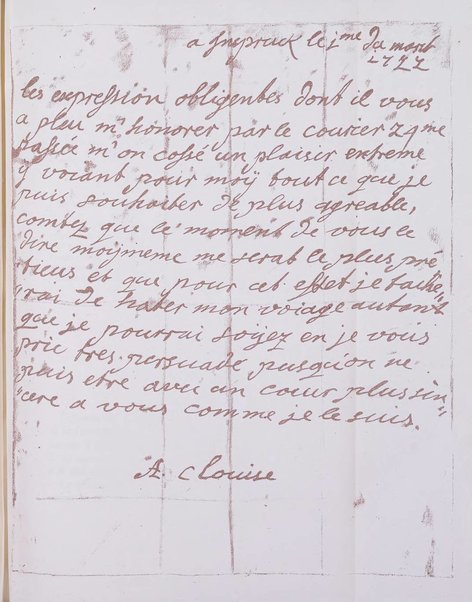 a Inspruck le 1me du mars
1722
les expression obligentes dont il vous
a pleu m'honorer par le courier
m'on cossé un plaisir extreme
y voiant pour moÿ tout ce que je
puis souhaiter de plus agreable,
comtez que le moment de vous le
dire moÿmeme me serat le plus pré
tieus et que pour cet effet je tache,
rai de hater mon voiage autant
que je pourrai soÿez en je vous
prie tres persuadé pusqu'on ne
puis etre avec un cœur plus sin
cere a vous comme je le suis.
A. Louise